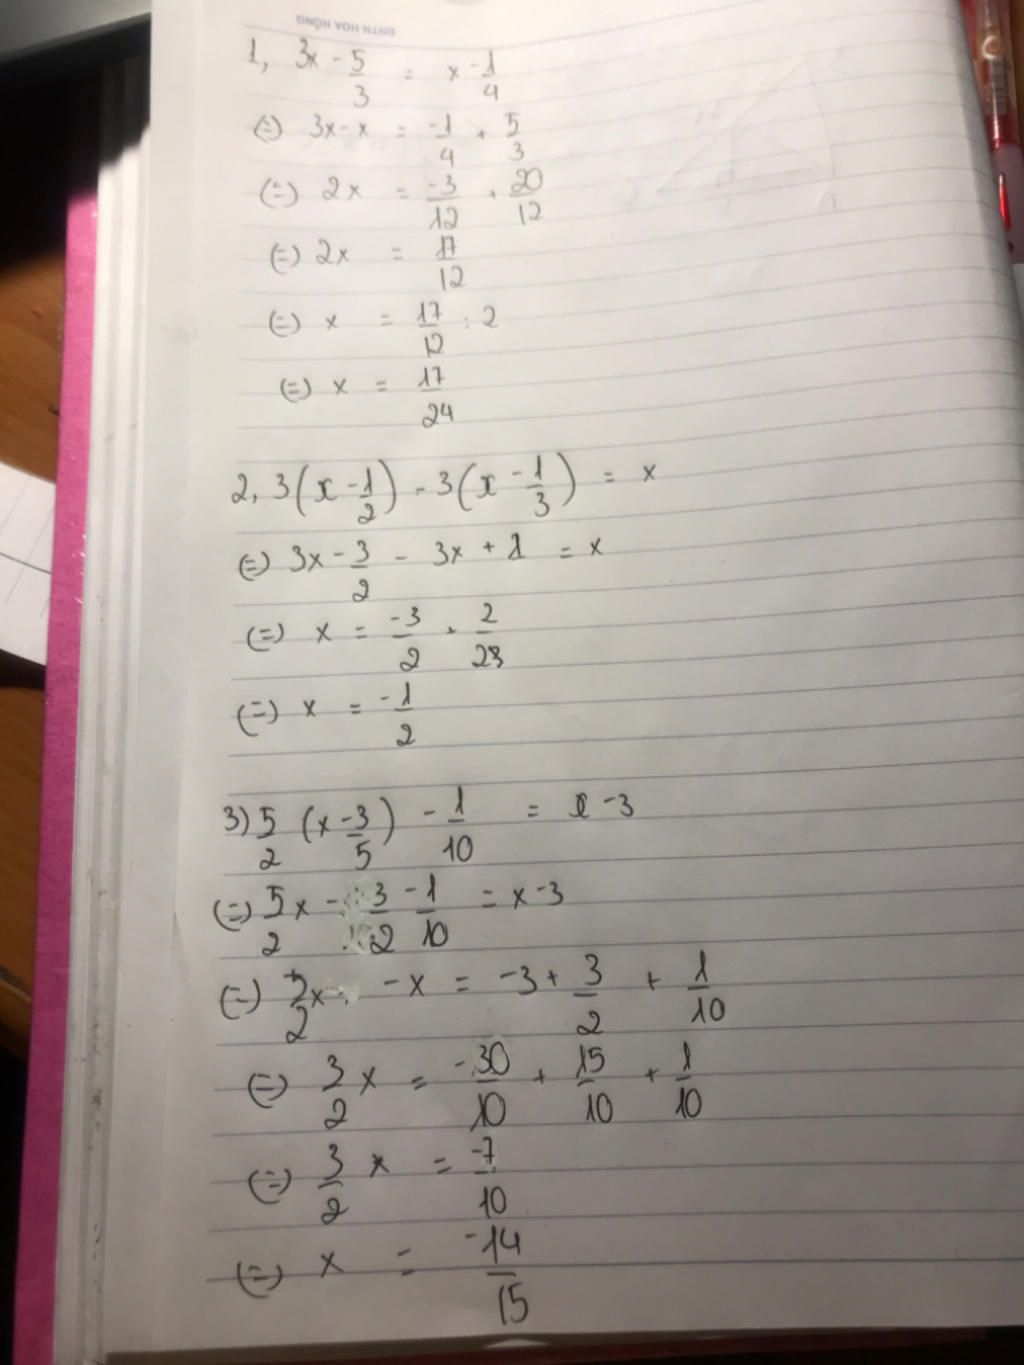 DNTN HOA HỒNG
1, 3x - 5/3 = x - 1/4
(=) 3x - x = -1/4 + 5/3
(=) 2x = -3/12 + 20/12
(=) 2x = 17/12
(=) x = 17/12 : 2
(=) x = 17/24
2, 3(x - 1/2) - 3(x - 1/3) = x
(=) 3x - 3/2 - 3x + 1 = x
(=) x = -3/2 + 2/2
(=) x = -1/2
3) 5/2 (x - 3/5) - 1/10 = x - 3
(=) 5/2 x - 3/2 - 1/10 = x - 3
(=) 5/2 x - x = -3 + 3/2 + 1/10
(=) 3/2 x = -30/10 + 15/10 + 1/10
(=) 3/2 x = -7/10
(=) x = -14/15